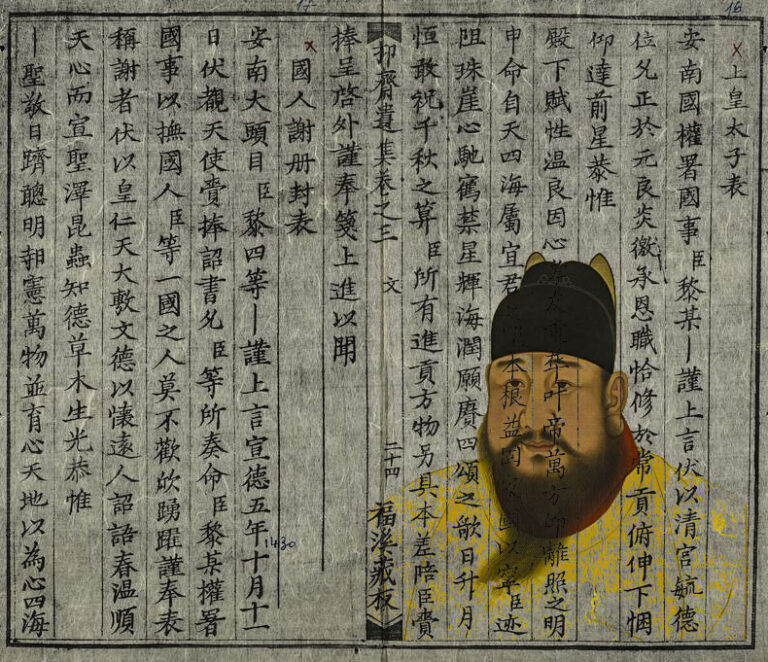 16
x上皇太子表
安南國權署國事臣黎某丨謹上言伏以清宮毓德
位允正於元良炎徼承恩職恰修於常貢俯伸下悃
仰達前星恭惟
殿下賦性温良因心孝友重華叶帝萬方仰離照之明
申命自天四海屬宜君之本根益固國以寧臣迹
阻珠崖心馳鶴禁星輝海潤願賡四頌之歌日升月
恒敢祝千秋之算臣所有進貢方物另具本差陪臣賫
17
抑齋遺集卷之三 文 二十四 福溪藏板
捧呈啓外謹奉箋上進以聞
x國人謝册封表
安南大頭目臣黎四等丨謹上言宣德五年十月十一
1430
日伏覩天使賫捧詔書允臣等所奏命臣黎某權署
國事以撫國人臣等一國之人莫不歡欣踴躍謹奉表
稱謝者伏以皇仁天大敷文德以懷遠人詔語春温順
天心而宣聖澤昆蟲知德草木生光恭惟
丨聖敬日躋聰明憲萬物並育心天地以為心四海